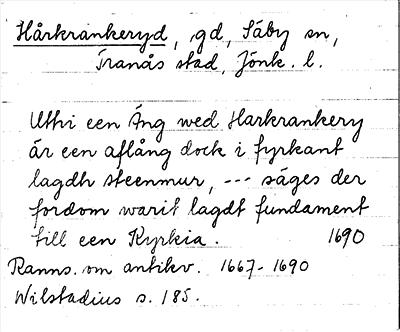 Hårkrankeryd, gd, Säby sn,
Tranås stad, Jönk. l.
Uthi een Äng wed Harkrankery
är een aflång dock i fyrkant
lagdh steenmur, --- säges der
fordom warit lagdt fundament
till een Kyrkia. 1690
Ranns. om antikv. 1667-1690
Wilstadius s. 185.